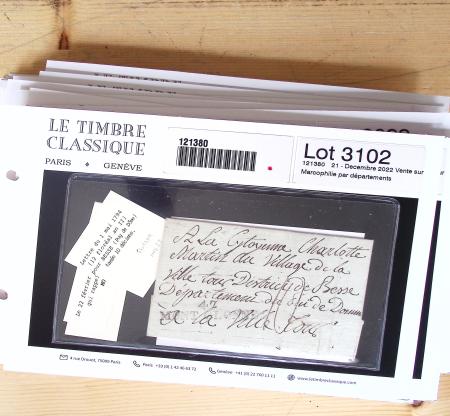 LE TIMBRE
CLASSIQUE
PARIS ✦ GENÈVE
121380
Lot 3102
121380 21 - Decembre 2022 Vente sur
Marcophilie par départements
Lettre du 1 mai 1794
(12 Floréal an II)
pour BESSE (Puy de Dôme)
Le 22 février
A La Citoyenne Charlotte
Martin du Village de la
ville tour District de Besse
Departement du Pui de Domme
A la Ville Tour
4 rue Drouot, 75009 Paris
Paris +33 (0) 1 42 46 63 72
Genève +41 (0) 22 760 11 11
www.letimbreclassique.com